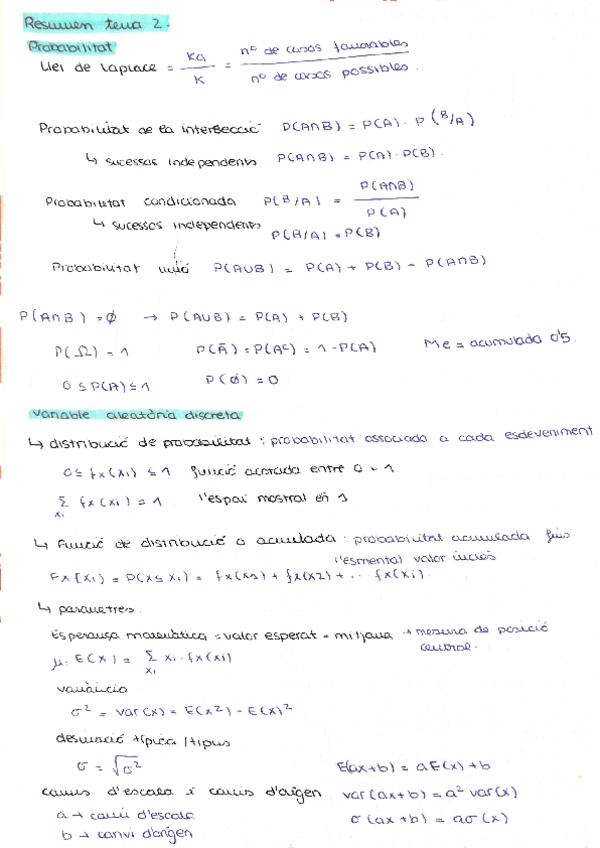 Resumen tema 2.
Probabilitat
Llei de Laplace = Ka / K = nº de casos favorables / nº de casos possibles.
Probabilitat de la intersecció P(A∩B) = P(A) · P(B/A)
↳ sucessos independents P(A∩B) = P(A) · P(B).
Probabilitat condicionada P(B/A) = P(A∩B) / P(A)
↳ sucessos independents P(B/A) = P(B)
Probabilitat unió P(A∪B) = P(A) + P(B) - P(A∩B)
P(A∩B) = ∅ → P(A∪B) = P(A) + P(B)
P(Ω) = 1 P(Ā) = P(Aᶜ) = 1 - P(A) Me = acumulada 0'5.
0 ≤ P(A) ≤ 1 P(∅) = 0
variable aleatòria discreta
↳ distribució de probabilitat : probabilitat associada a cada esdeveniment
0 ≤ fx(xi) ≤ 1 funció acotada entre 0 - 1
Σxi fx(xi) = 1 l'espai mostral és 1
↳ Funció de distribució o acumulada : probabilitat acumulada fins
l'esmentat valor inclòs
Fx[xi) = P(x ≤ xi) = fx(x1) + fx(x2) + ... fx(xi).
↳ parametres.
Esperança matemàtica = valor esperat = mitjana → mesura de posició
central.
μ: E(x) = Σxi xi · fx(xi)
variància
σ² = var(x) = E(x²) - E(x)²
desviació típica / tipus
σ = √σ² E(ax+b) = aE(x) + b
canvis d'escala i canvis d'origen var(ax+b) = a² var(x)
a → canvi d'escala σ(ax+b) = aσ(x)
b → canvi d'origen